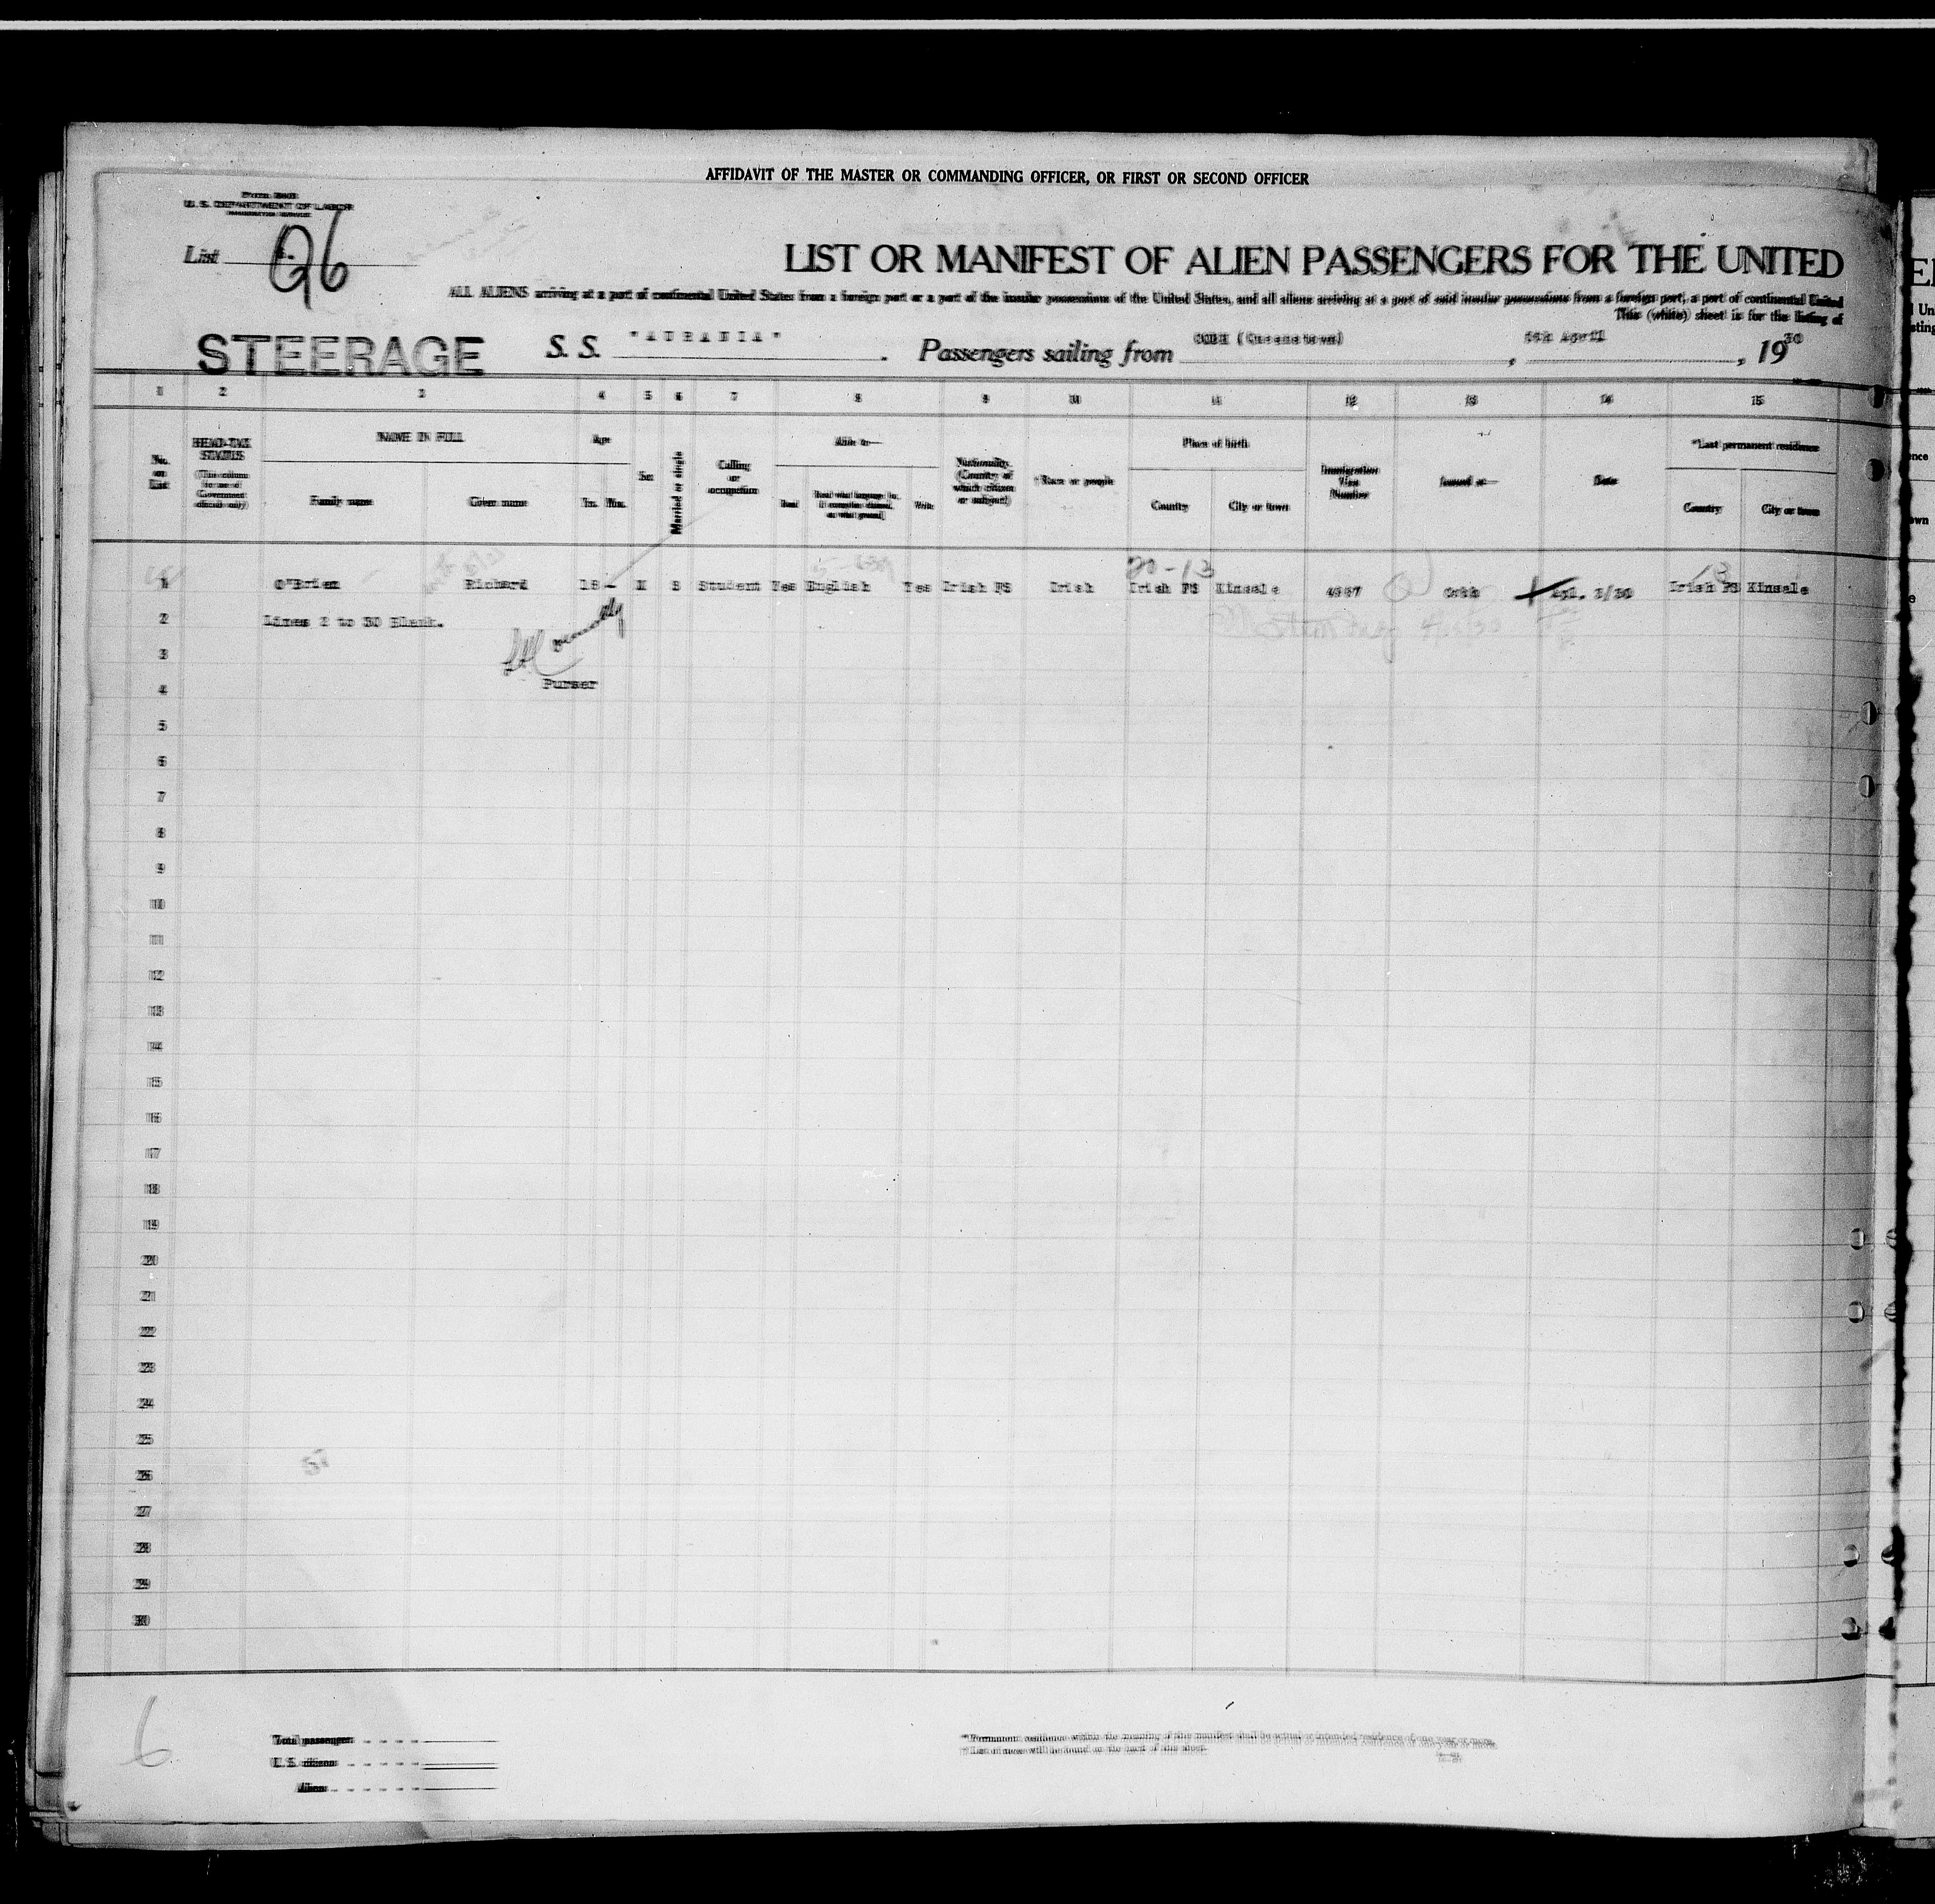 AFFIDAVIT OF THE MASTER OR COMMANDING OFFICER, OR FIRST OR SECOND OFFICER
U. S. DEPARTMENT OF LABOR
List 96
LIST OR MANIFEST OF ALIEN PASSENGERS FOR THE UNITED
ALL ALIENS arriving at a port of continental United States from a foreign port or a port of the insular possessions of the United States, and all aliens arriving at a port of said insular possessions from a foreign port, a port of continental United
This (white) sheet is for the listing of
STEERAGE S. S. "AURANIA". Passengers sailing from COBH (Queenstown), April, 1930
1 2 3 4 5 6 7 8 9 10 11 12 13 14 15
No. on List
HEAD-TAX STATUS (This column for use of Government officials only)
NAME IN FULL
Family name Given name
Age
Yrs. Mos.
Sex
Married or single
Calling or occupation
Able to—
Read Read what language [or, if exemption claimed, on what ground] Write
Nationality. (Country of which citizen or subject)
†Race or people
Place of birth
Country City or town
Immigration Visa Number
Issued at—
Date
*Last permanent residence
Country City or town
20-13
1 O'Brien Richard 18 - M S Student Yes English Yes Irish FS Irish Irish FS Kinsale Cobh Apl. Irish FS Kinsale
2 Lines 2 to 30 Blank.
3
Purser
4
5
6
7
8
9
10
11
12
13
14
15
16
17
18
19
20
21
22
23
24
25
26
27
28
29
30
6
Total passengers
U. S. citizens
Aliens
*Permanent residence within the meaning of this manifest shall be actual or intended residence of one year or more.
†List of races will be found on the back of this sheet.